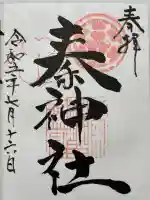 奉拝
秦神社
令和年七月十六日